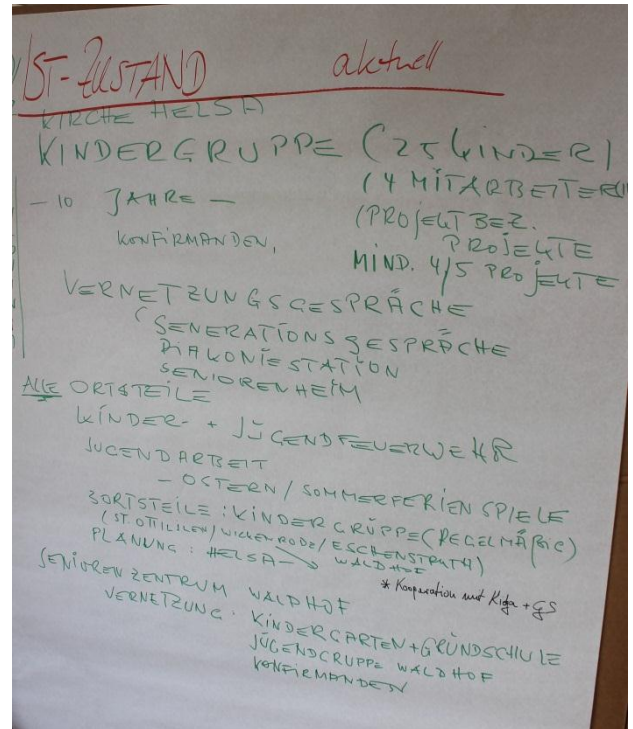 IST-ZUSTAND aktuell
KIRCHE HELSA
KINDERGRUPPE (25 KINDER)
(4 MITARBEITER
- 10 JAHRE -
(PROJEKTBEZ.
KONFIRMANDEN,
PROJEKTE
MIND. 4/5 PROJEKTE
VERNETZUNGSGESPRÄCHE
(GENERATIONSGESPRÄCHE
DIAKONIESTATION
SENIORENHEIM
ALLE ORTSTEILE
KINDER- + JUGENDFEUERWEHR
JUGENDARBEIT
- OSTERN / SOMMERFERIENSPIELE
3 ORTSTEILE: KINDERGRUPPE (REGELMÄßIG)
(ST. OTTILIEN / WICKENRODE / ESCHENSTRUTH)
PLANUNG: HELSA → WALDHOF
* Kooperation mit Kiga + GS
SENIORENZENTRUM WALDHOF
VERNETZUNG. KINDERGARTEN + GRUNDSCHULE
JUGENDGRUPPE WALDHOF
KONFIRMANDEN